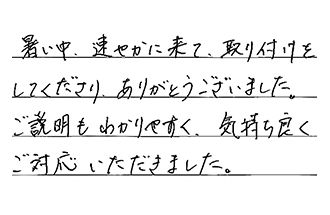 暑い中、速やかに来て、取り付けを
してくださり、ありがとうございました。
ご説明もわかりやすく、気持ち良く
ご対応いただきました。